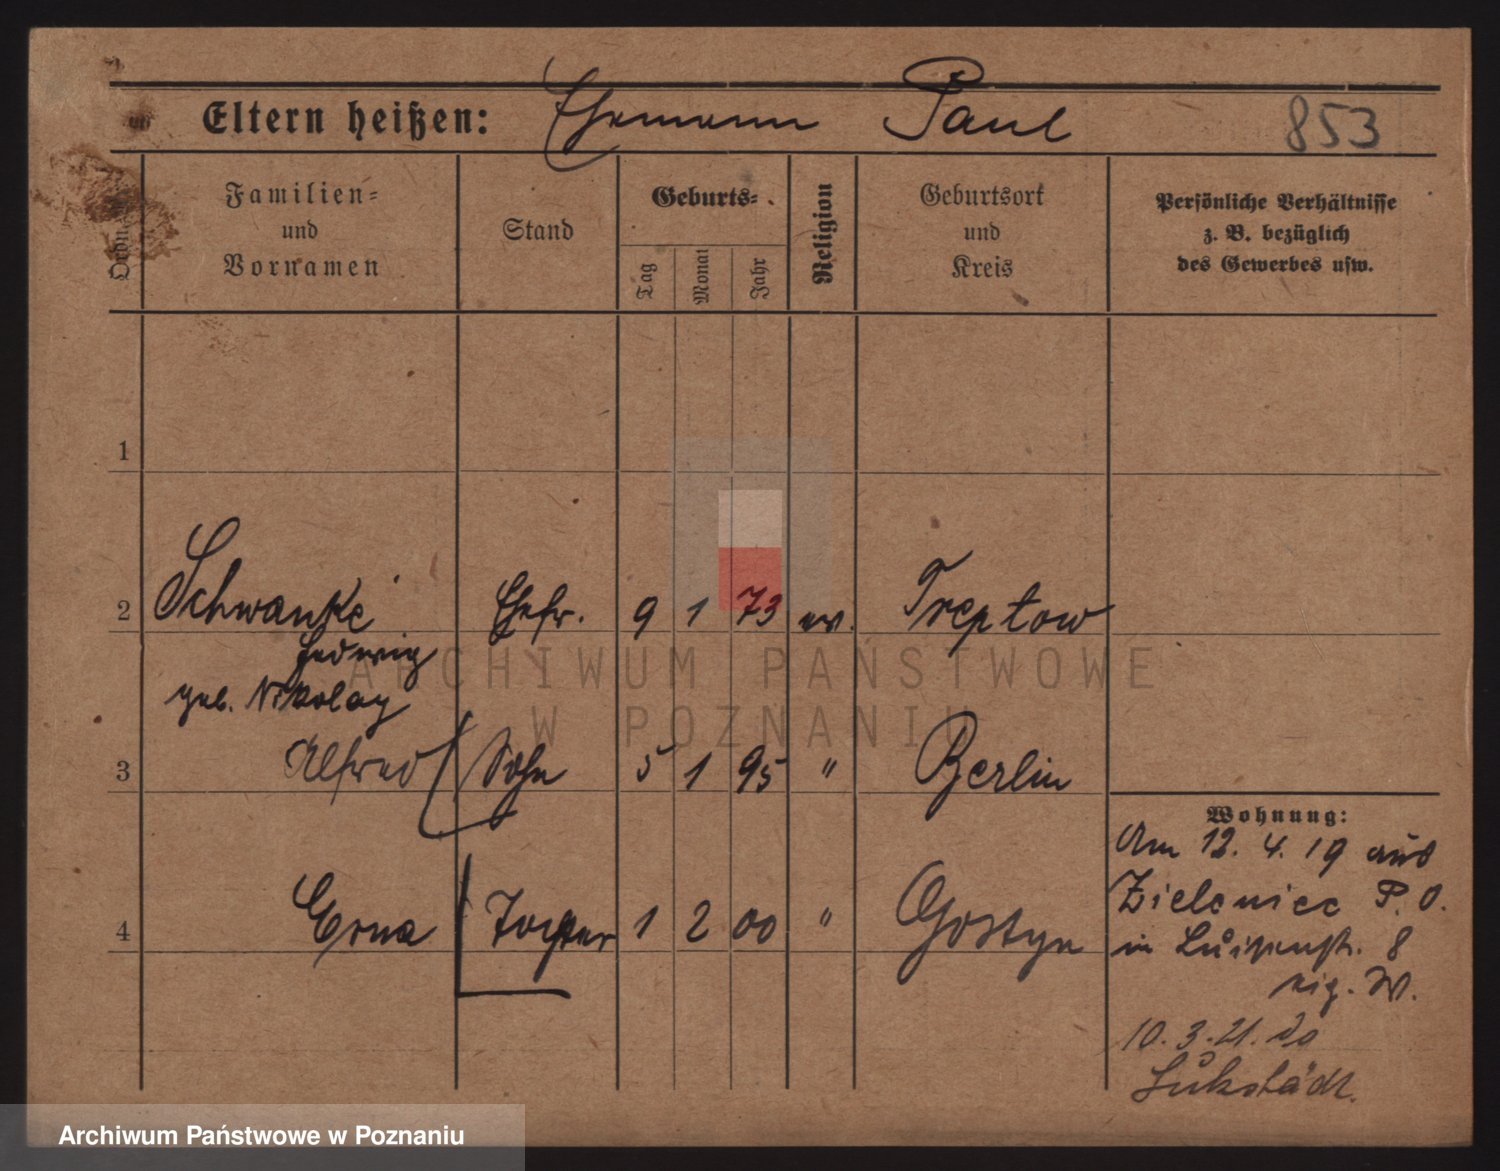 Eltern heißen: Ehemann Paul 853
Ordn.
Familien-
und
Vornamen
Stand
Geburts-
Tag
Monat
Jahr
Religion
Geburtsort
und
Kreis
Persönliche Verhältnisse
z. B. bezüglich
des Gewerbes usw.
1
2 Schwanke Ehefr. 9 1 73 ev. Treptow
Hedwig
geb. Nikolay
3 Alfred Sohn 5 1 95 " Berlin
4 Erna Tochter 1 2 00 " Gostyn
Wohnung:
Am 12. 4. 19 aus
Zieleniec P. O.
in Luisenstr. 8
eig. W.
10. 3. 21.
ARCHIWUM PAŃSTWOWE
W POZNANIU
Archiwum Państwowe w Poznaniu